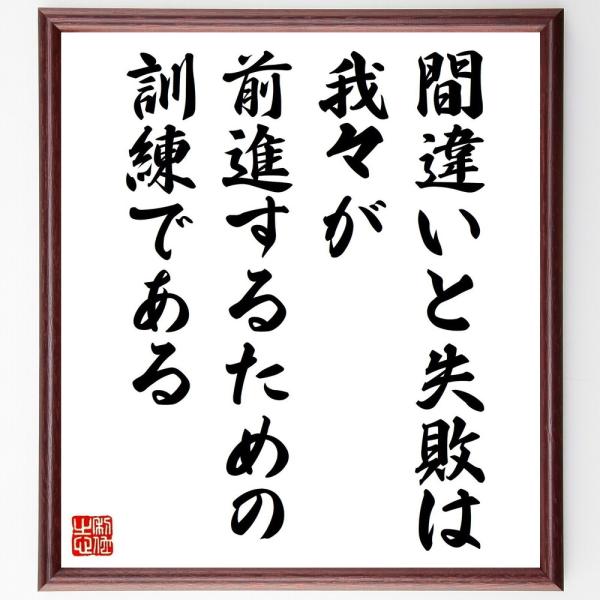 間違いと失敗は
我々が
前進するための
訓練である